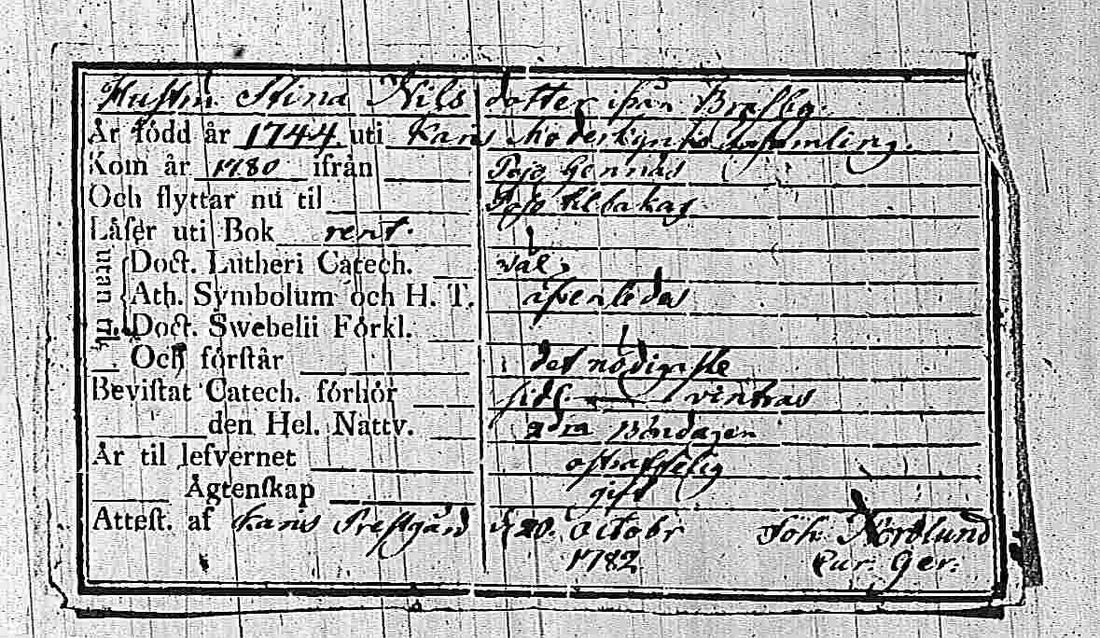 Hustru Stina Nils dotter ifrån Brasby.
Är född år 1744 uti Karis Moderkyrko församling.
Kom år 1780 ifrån Pojo Gennäs
Och flyttar nu til Pojo tilbakas
Läser uti Bok rent.
utan til Doct. Lutheri Catech. väl
Ath. Symbolum och H. T. äfvenledes
Doct. Swebelii Förkl.
Och förstår det nödigaste
Bevistat Catech. förhör sidst. vintras
den Hel. Nattv. 2dra Böndagen
Är til lefvernet ostraffelig
Ägtenskap gift
Attest. af Karis Prestgård d. 20. Octobr Joh. Nordlund
1782 Cur. Ger.